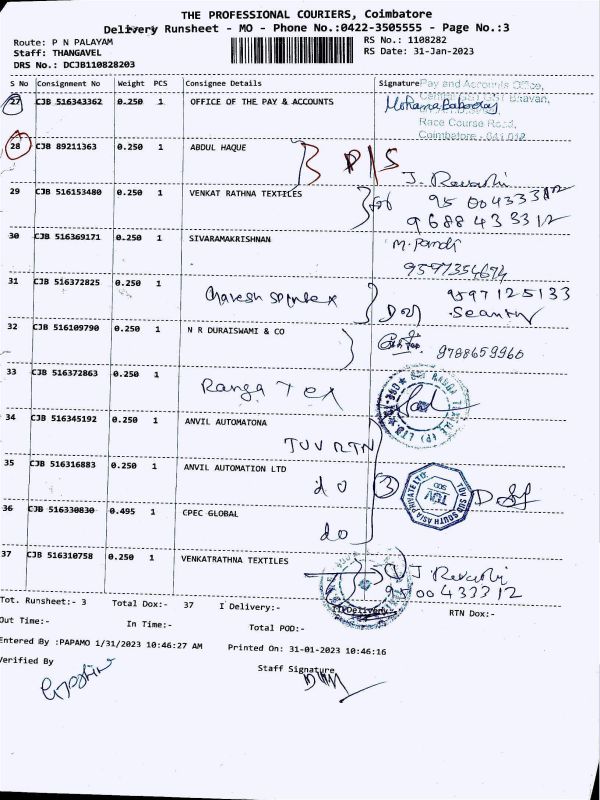 THE PROFESSIONAL COURIERS, Coimbatore
Delivery Runsheet - MO - Phone No.:0422-3505555 - Page No.:3
Route: P N PALAYAM
RS No.: 1108282
Staff: THANGAVEL
RS Date: 31-Jan-2023
DRS No.: DCJB110828203
S No Consignment No Weight PCS Consignee Details Signature
Pay and Accounts Office,
27 CJB 516343362 0.250 1 OFFICE OF THE PAY & ACCOUNTS
Race Course Road,
Coimbatore - 641 018
28 CJB 89211363 0.250 1 ABDUL HAQUE
P/S
J. Revathi
29 CJB 516153480 0.250 1 VENKAT RATHNA TEXTILES
95 00433312
9688433312
30 CJB 516369171 0.250 1 SIVARAMAKRISHNAN
M. Pandi
9597354674
31 CJB 516372825 0.250 1
9597125133
32 CJB 516109790 0.250 1 N R DURAISWAMI & CO
9788659960
33 CJB 516372863 0.250 1 Ranga Tex
34 CJB 516345192 0.250 1 ANVIL AUTOMATONA
TUV RTN
35 CJB 516316883 0.250 1 ANVIL AUTOMATION LTD
do
3
TUV SUD SOUTH ASIA PRIVATE LTD.
36 CJB 516330830 0.495 1 CPEC GLOBAL
do
37 CJB 516310758 0.250 1 VENKATRATHNA TEXTILES
J Revathi
9500433312
Tot. Runsheet:- 3 Total Dox:- 37 I Delivery:- RTN Dox:-
Out Time:- In Time:- Total POD:-
Entered By :PAPAMO 1/31/2023 10:46:27 AM Printed On: 31-01-2023 10:46:16
Verified By
Staff Signature